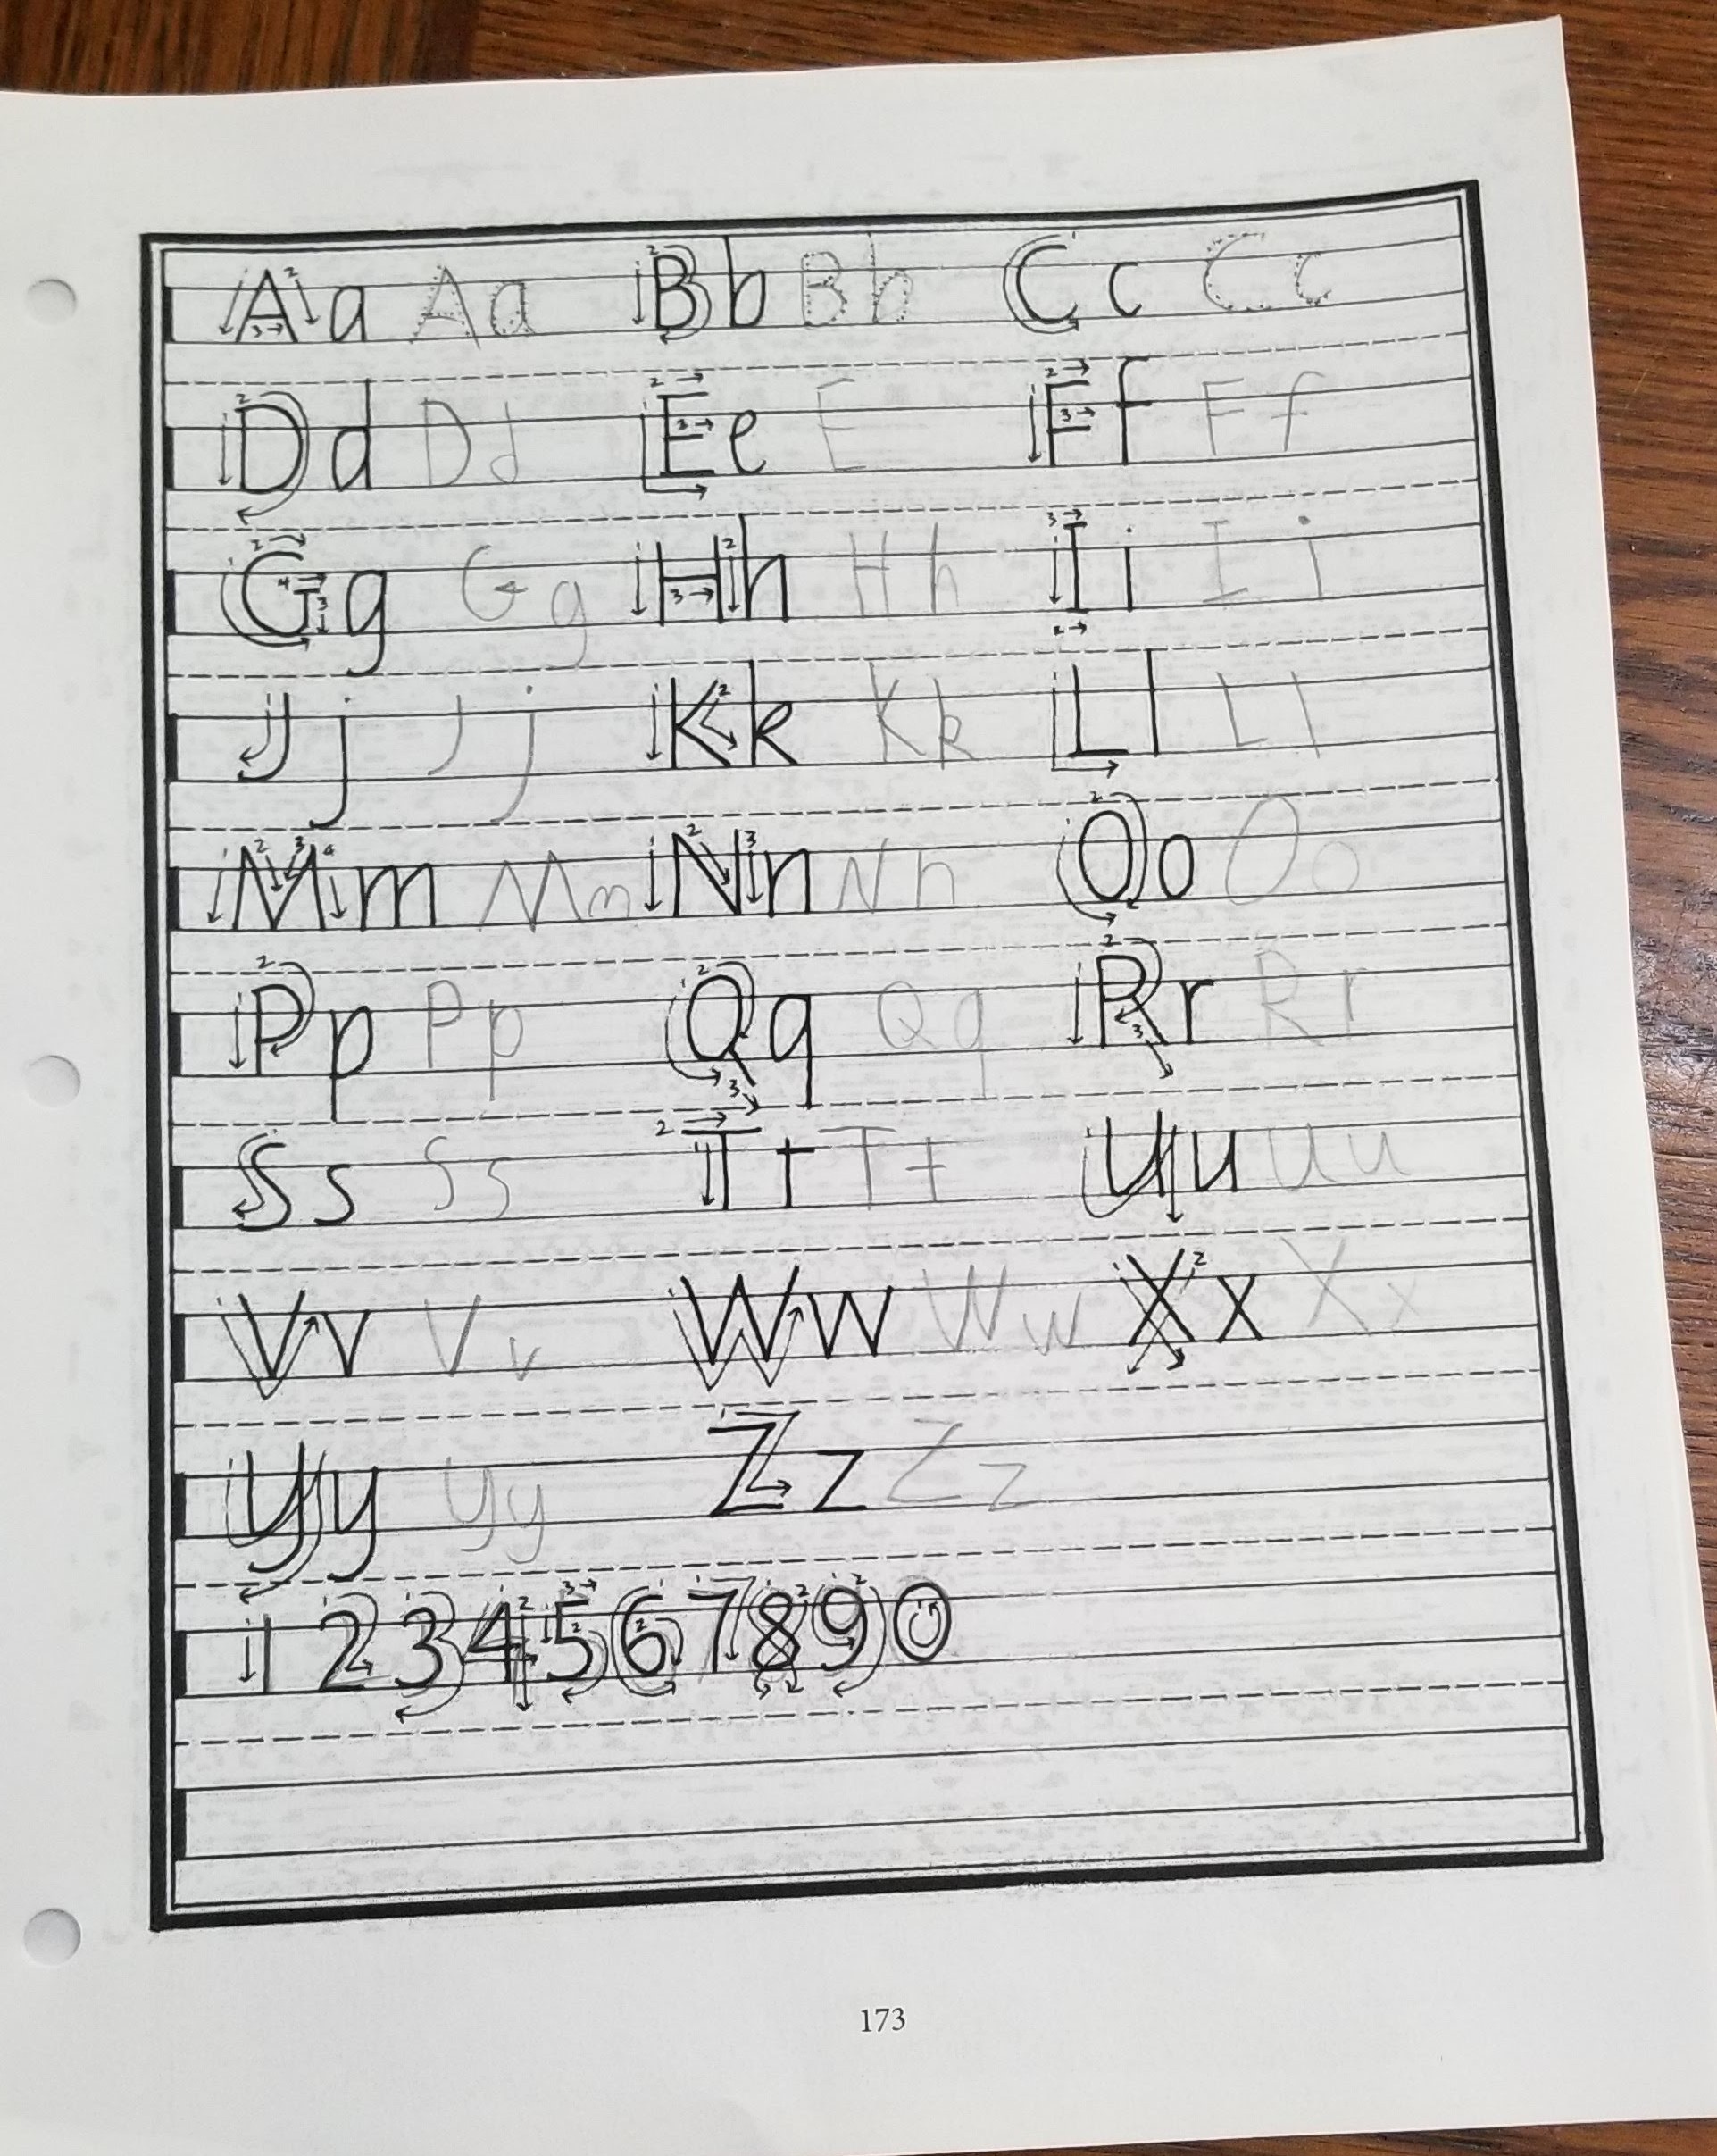 Aa Aa Bb Bb Cc Cc
Dd Dd Ee E Ff Ff
Gg Gg Hh Hh Ii Ii
Jj Jj Kk Kk Ll Ll
Mm Mm Nn Nn Oo Oo
Pp Pp Qq Qq Rr Rr
Ss Ss Tt Tt Uu Uu
Vv Vv Ww Ww Xx Xx
Yy Yy Zz Zz
1 2 3 4 5 6 7 8 9 0
173